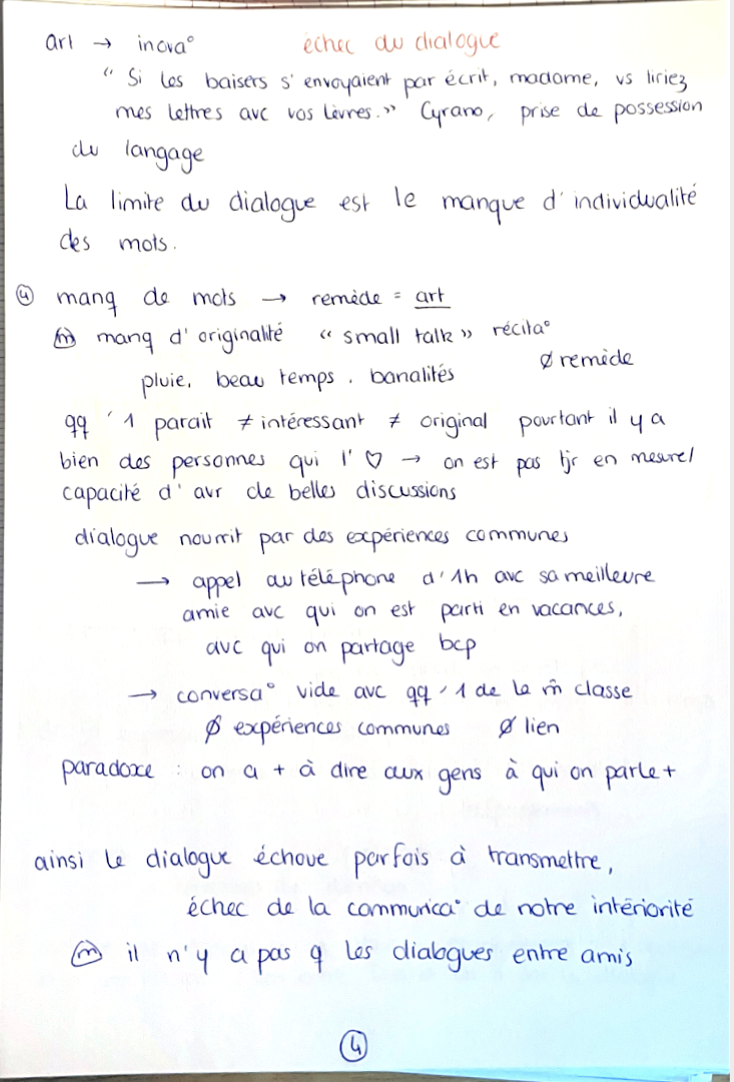 art → inova° échec du dialogue
" Si les baisers s'envoyaient par écrit, madame, vs liriez
mes lettres avc vos lèvres. " Cyrano, prise de possession
du langage
La limite du dialogue est le manque d'individualité
des mots.
④ manq de mots → remède = art
ⓜ manq d'originalité " small talk " récita°
∅ remède
pluie, beau temps. banalités
qq'1 parait ≠ intéressant ≠ original pourtant il y a
bien des personnes qui l'♡ → on est pas tjr en mesure/
capacité d'avr de belles discussions
dialogue nourrit par des expériences communes
→ appel au téléphone d'1h avc sa meilleure
amie avc qui on est parti en vacances,
avc qui on partage bcp
→ conversa° vide avc qq'1 de la m̂ classe
∅ expériences communes ∅ lien
paradoxe : on a + à dire aux gens à qui on parle +
ainsi le dialogue échoue parfois à transmettre,
échec de la communica° de notre intériorité
ⓜ il n'y a pas q les dialogues entre amis
④